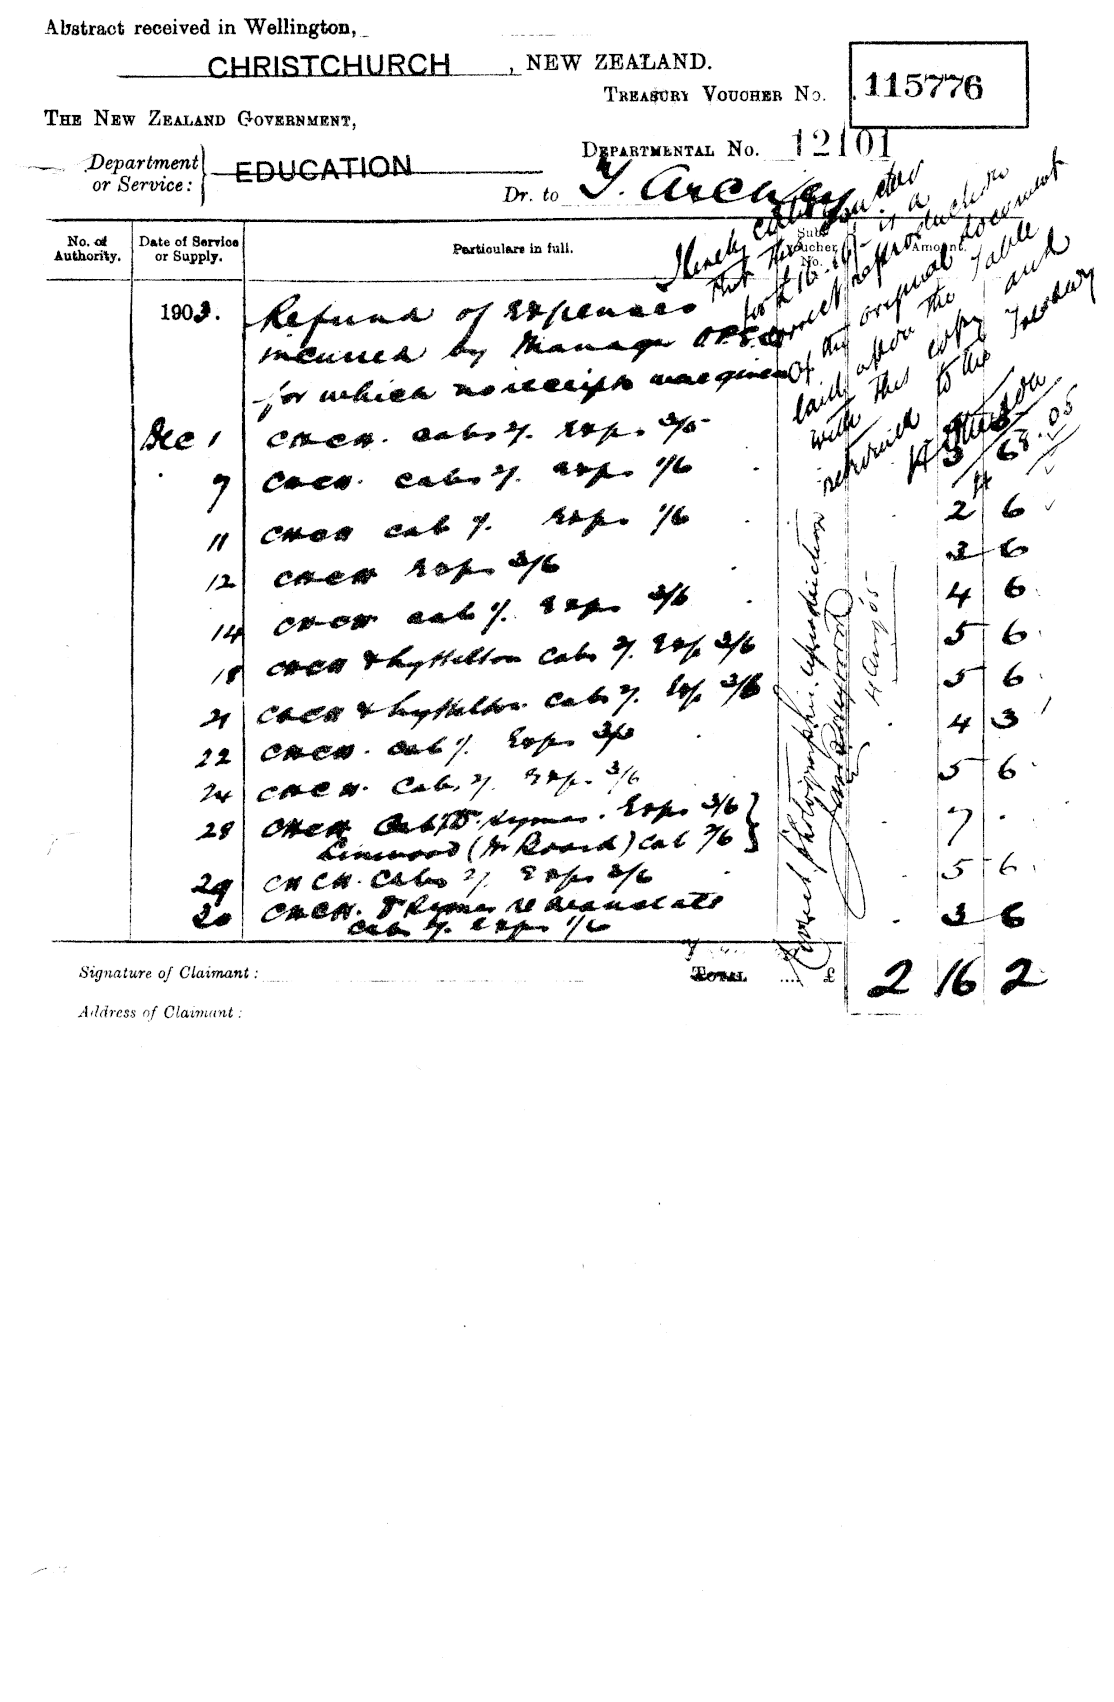 Abstract received in Wellington,
CHRISTCHURCH, NEW ZEALAND.
TREASURY VOUCHER No. 115776
THE NEW ZEALAND GOVERNMENT,
DEPARTMENTAL No. 12101
Department
or Service:
EDUCATION
Dr. to
No. of
Authority.
Date of Service
or Supply.
Particulars in full.
Sub-
Voucher
No.
Amount.
I hereby certify
that this voucher
for £2 16. 2 is a
correct reproduction
of the original document
laid upon the Table
with this copy and
returned to the Treasury
1903. Refund of expenses
incurred by Manager
for which no receipts was given
Dec 1 CHCH. Cabs 2/. Exps
7 CHCH. Cabs 2/. Exps 1/6 . 6
11 CHCH Cab 1/. Exps 1/6 . 2 6
12 CHCH Exps 3/6 . 3 6
14 CHCH Cab 1/. Exps 3/6 . 4 6
18 CHCH & Lyttelton Cabs 2/. Exps 3/6 5 6
21 CHCH & Lyttelton. Cabs 2/. Exps 3/6 5 6
22 CHCH. Cab 1/. Exps . 4 3
24 CHCH. Cabs 2/. Exps. 3/6 5 6
28 CHCH Cab Exps 3/6
Linwood ( Board) Cab 7 .
29 CHCH. Cabs 2/. Exps 3/6 5 6
CHCH. 3 6
Cabs 2/. Exps 1/6
Correct photographic reproduction
4 Aug 05
Signature of Claimant:
TOTAL .... £ 2 16 2
Address of Claimant: